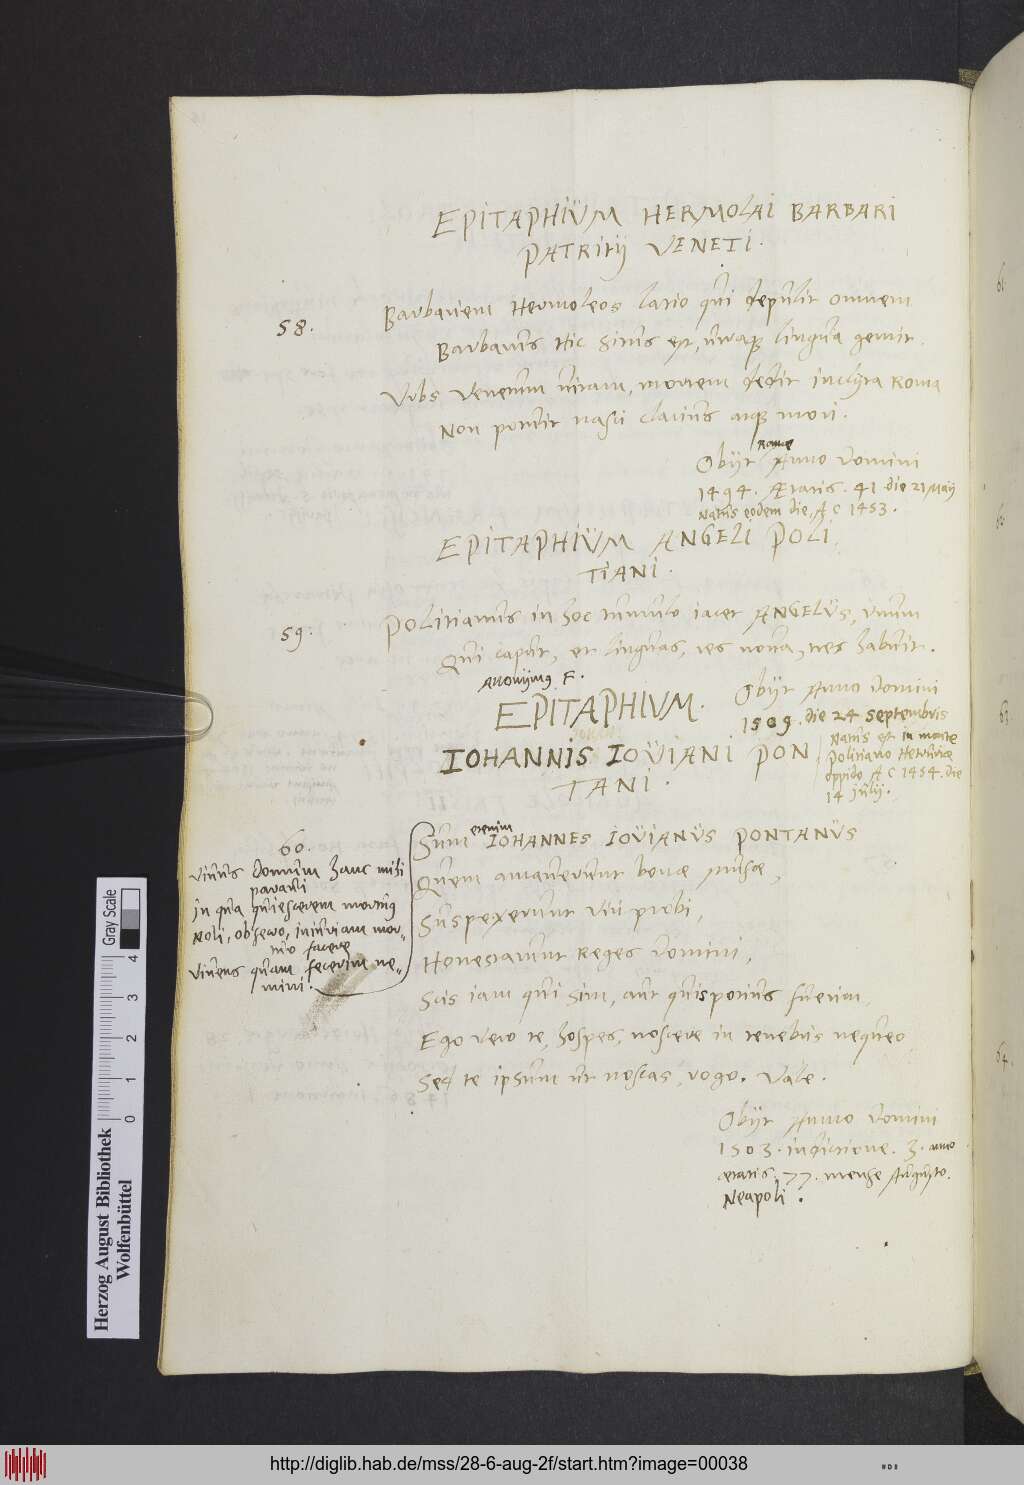 EPITAPHIÜM HERMOLAI BARBARI
PATRITij VENETI.
58.
Barbariem Hermoleos latio qui depulit omnem
Barbarus Hic situs est, utraq3 lingua gemit.
Vrbs Venetum vitam, mortem dedit inclyta Roma
Non potuit nasci clarius atq3 mori.
Romæ
Obijt Anno Domini
1494. Ætatis. 41 die 21 Maij
Natus eodem die, A C 1453.
EPITAPHIÜM ANGELI POLI
TIANI.
59.
POLitianus in hoc tumulo iacet ANGELÜS, unum
Qui caput, et linguas, res nova, tres habuit.
Anonijmus F.
Obijt Anno Domini
1509. die 24 Septembris
Natus est in monte
Politiano Hetruriæ
oppido A C 1454. die
14 Julij.
EPITAPHIVM.
IOHANNIS IOÜIANI PON
TANI.
60.
Vivus domum hanc mihi
paravi
In qua quiescerem mortuus
Noli, obsecro, iniuriam mor-
tuo facere
Vivens quam fecerim ne-
mini.
etenim
Sum IOHANNES IOÜIANÜS PONTANÜS
Quem amaverunt bonæ musæ,
Suspexerunt viri probi,
Honestarunt Reges Domini,
Scis iam qui sim, aut quis potius fuerim,
Ego vero te, hospes, noscere in tenebris nequeo
Sed te ipsum ut noscas, rogo. Vale.
Obijt Anno Domini
1503. indictione. 3. anno
ætatis. 77. mense Augusto.
Neapoli.
61.
63.
64.
Herzog August Bibliothek
Wolfenbüttel
Gray Scale
0 1 2 3 4
http://diglib.hab.de/mss/28-6-aug-2f/start.htm?image=00038